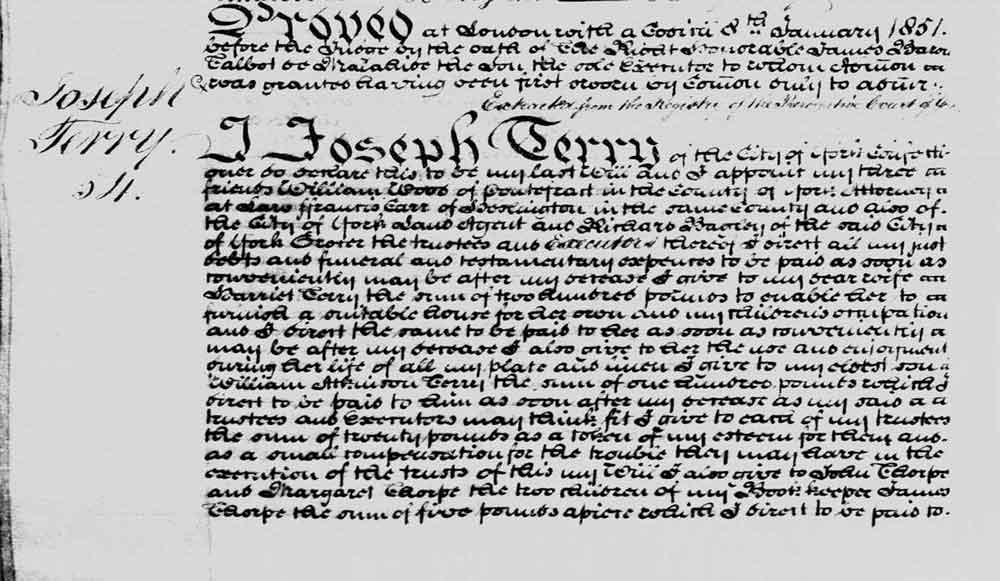 Proved at London with a Codicil 8th January 1851.
before the Judge by the oath of The Right Honorable James Baron
Talbot de Malahide the Son, the sole Executor to whom Admon
was granted having been first sworn by Comon duly to admr.
Extracted from the Registry of the Prerogative Court of
Joseph
Terry.
54.
I Joseph Terry of the City of York Confecti-
oner do declare this to be my last Will and I appoint my three
friends William Wood of Pontefract in the County of York Attorney
at Law Francis Carr of in the same County and also of
the City of York Land Agent and Richard of the said City
of York Grocer the trustees and Executors thereof I direct all my just
debts and funeral and testamentary expences to be paid as soon as
conveniently may be after my decease I give to my dear wife
Harriet Terry the sum of two hundred pounds to enable her to
furnish a suitable house for her own and my childrens occupation
and I direct the same to be paid to her as soon as conveniently
may be after my decease I also give to her the use and enjoyment
during her life of all my plate and linen I give to my eldest son
William Atkinson Terry the sum of one hundred pounds which I
direct to be paid to him as soon after my decease as my said
trustees and Executors may think fit I give to each of my trustees
the sum of twenty pounds as a token of my esteem for them and
as a small compensation for the trouble they may have in the
execution of the trusts of this my Will I also give to John Thorpe
and Margaret Thorpe the two children of my Book keeper James
Thorpe the sum of five pounds apiece which I direct to be paid to